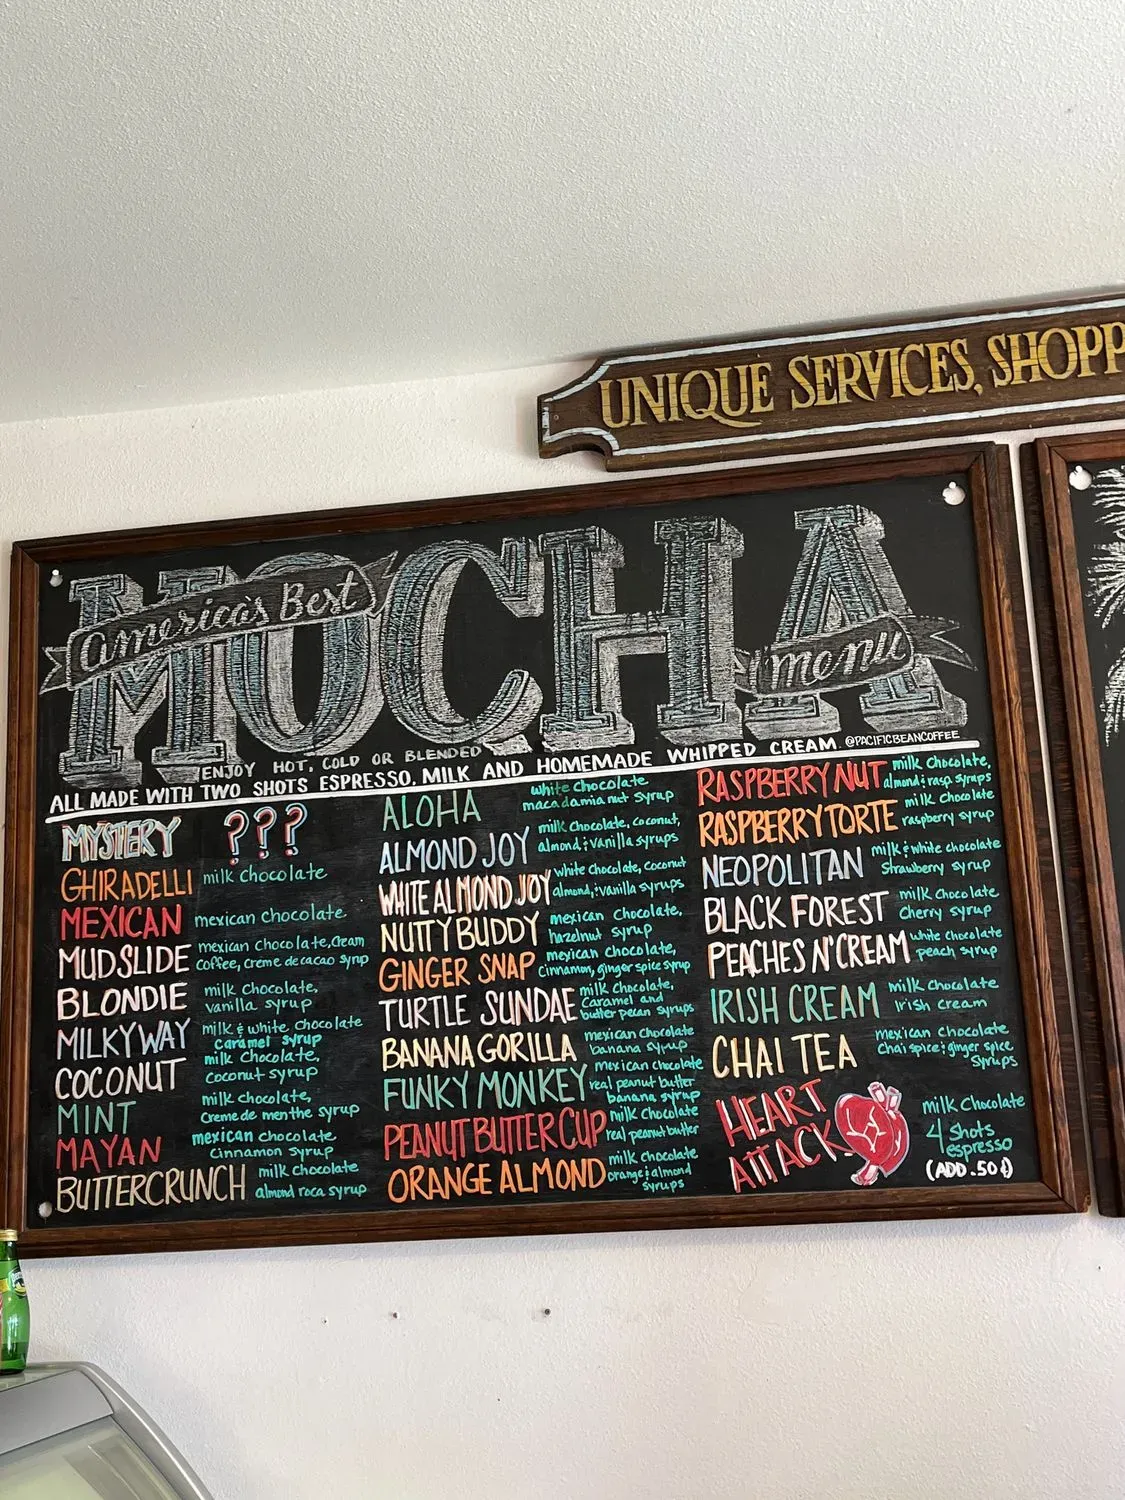 UNIQUE SERVICES, SHOPP
America's Best
MOCHA
menu
ENJOY HOT, COLD OR BLENDED
@PACIFICBEANCOFFEE
ALL MADE WITH TWO SHOTS ESPRESSO, MILK AND HOMEMADE WHIPPED CREAM.
MYSTERY ???
GHIRADELLI milk chocolate
MEXICAN mexican chocolate
MUDSLIDE mexican chocolate, cream
coffee, creme de cacao syrup
BLONDIE milk chocolate,
vanilla syrup
MILKYWAY milk & white chocolate
caramel syrup
COCONUT milk chocolate,
coconut syrup
MINT milk chocolate,
creme de menthe syrup
MAYAN mexican chocolate
cinnamon syrup
BUTTERCRUNCH milk chocolate
almond roca syrup
ALOHA white chocolate
macadamia nut syrup
ALMOND JOY milk chocolate, coconut,
almond, & vanilla syrups
WHITE ALMOND JOY white chocolate, coconut
almond, & vanilla syrups
NUTTY BUDDY mexican chocolate,
hazelnut syrup
GINGER SNAP mexican chocolate,
cinnamon, ginger spice syrup
TURTLE SUNDAE milk chocolate,
caramel and
butter pecan syrups
BANANA GORILLA mexican chocolate
banana syrup
FUNKY MONKEY mexican chocolate
real peanut butter
banana syrup
PEANUT BUTTER CUP milk chocolate
real peanut butter
ORANGE ALMOND milk chocolate
orange & almond
syrups
RASPBERRY NUT milk chocolate,
almond & rasp syrups
RASPBERRY TORTE milk chocolate
raspberry syrup
NEOPOLITAN milk & white chocolate
Strawberry syrup
BLACK FOREST milk chocolate
cherry syrup
PEACHES N' CREAM white chocolate
peach syrup
IRISH CREAM milk chocolate
Irish cream
CHAI TEA mexican chocolate
chai spice & ginger spice
syrups
HEART
ATTACK milk chocolate
4 shots
espresso
(ADD .50¢)